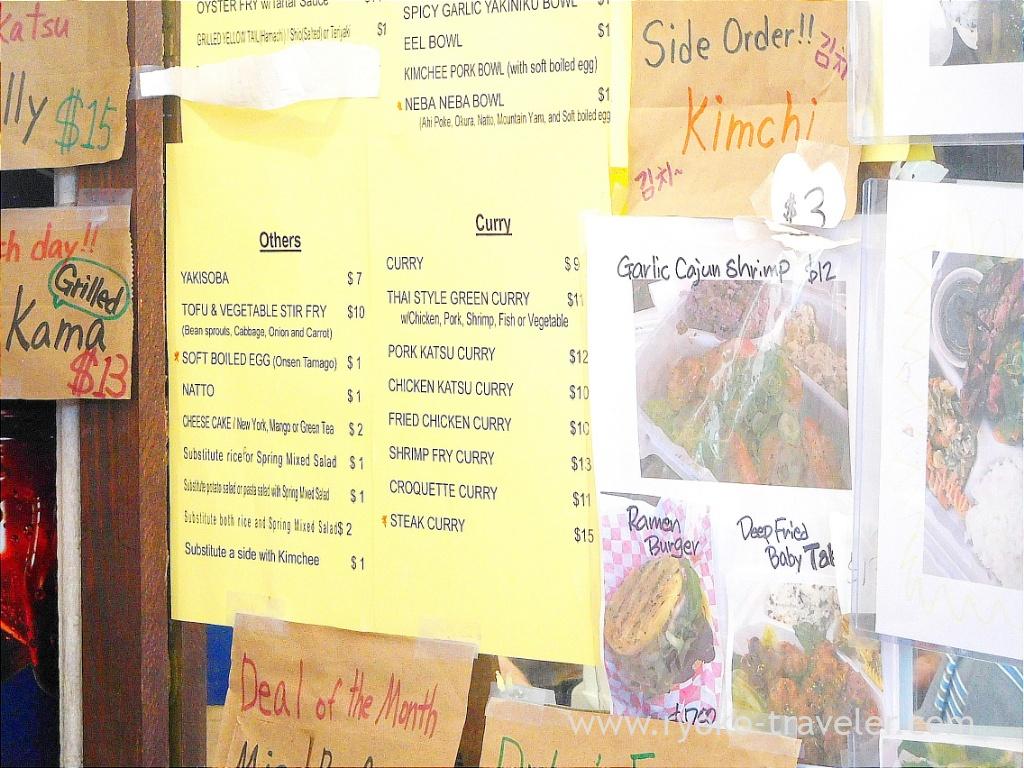 Katsu
lly $15
ch day!!
Grilled
Kama
$13
OYSTER FRY w/Tartar Sauce
GRILLED YELLOW TAIL(Hamachi) / Shio(Salted) or Teriyaki $1
SPICY GARLIC YAKINIKU BOWL $1
EEL BOWL $1
KIMCHEE PORK BOWL (with soft boiled egg)
NEBA NEBA BOWL $1
(Ahi Poke, Okura, Natto, Mountain Yam, and Soft boiled egg
Others
YAKISOBA $ 7
TOFU & VEGETABLE STIR FRY $10
(Bean sprouts, Cabbage, Onion and Carrot)
* SOFT BOILED EGG (Onsen Tamago) $ 1
NATTO $ 1
CHEESE CAKE / New York, Mango or Green Tea $ 2
Substitute rice for Spring Mixed Salad $ 1
Substitute potato salad or pasta salad with Spring Mixed Salad $ 1
Substitute both rice and Spring Mixed Salad $ 2
Substitute a side with Kimchee $ 1
Curry
CURRY $ 9
THAI STYLE GREEN CURRY $11
w/Chicken, Pork, Shrimp, Fish or Vegetable
PORK KATSU CURRY $12
CHICKEN KATSU CURRY $10
FRIED CHICKEN CURRY $10
SHRIMP FRY CURRY $13
CROQUETTE CURRY $11
* STEAK CURRY $15
Side Order!!
김치
Kimchi
김치~
$3
Garlic Cajun Shrimp $12
Ramen
Burger
Deep Fried
Baby Tak
Deal of the Month
www.ryoko-traveler.com